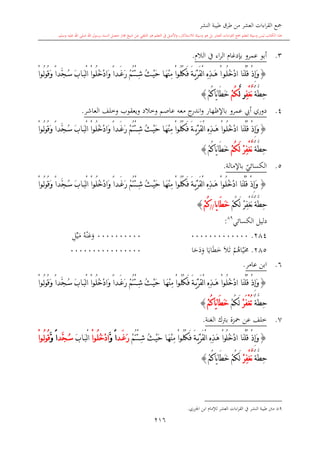 جمع القراءات العشر من طرق طيبة النشر
٣. أبو عمرو بإدغام الراء في اللام.
﴿ وَإِذْ قُلْنَا ادْخُلُوا۟ هَـٰذِهِ الْقَرْيَةَ فَكُلُوا۟ مِنْهَا حَيْثُ شِئْتُمْ رَغَداً وَادْخُلُوا۟ الْبَابَ سُجَّداً وَقُولُوا۟
حِطَّةٌ نَّغْفِر لَّكُمْ خَطَايَاكُمْ ﴾
٤. دوري أبي عمرو بالإظهار واندرج معه عاصم وخلاد ويعقوب وخلف العاشر.
﴿ وَإِذْ قُلْنَا ادْخُلُوا۟ هَـٰذِهِ الْقَرْيَةَ فَكُلُوا۟ مِنْهَا حَيْثُ شِئْتُمْ رَغَداً وَادْخُلُوا۟ الْبَابَ سُجَّداً وَقُولُوا۟
حِطَّةٌ نَّغْفِرْ لَكُمْ خَطَايَاكُمْ ﴾
٥. الكسائيّ بالإمالة.
﴿ وَإِذْ قُلْنَا ادْخُلُوا۟ هَـٰذِهِ الْقَرْيَةَ فَكُلُوا۟ مِنْهَا حَيْثُ شِئْتُمْ رَغَداً وَادْخُلُوا۟ الْبَابَ سُجَّداً وَقُولُوا۟
حِطَّةٌ نَّغْفِرْ لَكُمْ خَطَايَاكُمْ ﴾
دليل الكسائي٨٩:
٢٨٤. ............. .......... وَعَنْهُ مَيِّلِ
٢٨٥. مَحْيَاهُمُ تَلاَ خَطَايَا وَدَحَا ................
٦. ابن عامر.
﴿ وَإِذْ قُلْنَا ادْخُلُوا۟ هَـٰذِهِ الْقَرْيَةَ فَكُلُوا۟ مِنْهَا حَيْثُ شِئْتُمْ رَغَداً وَادْخُلُوا۟ الْبَابَ سُجَّداً وَقُولُوا۟
حِطَّةٌ تُغْفَرْ لَكُمْ خَطَايَاكُمْ ﴾
٧. خلف عن حمزة بترك الغنة.
﴿ وَإِذْ قُلْنَا ادْخُلُوا۟ هَـٰذِهِ الْقَرْيَةَ فَكُلُوا۟ مِنْهَا حَيْثُ شِئْتُمْ رَغَداً وَادْخُلُوا۟ الْبَابَ سُجَّداً وَقُولُوا۟
حِطَّةٌ نَّغْفِرْ لَكُمْ خَطَايَاكُمْ ﴾
٨٩ متن طيبة النشر في القراءات العشر للإمام ابن الجزري.
٢١٦